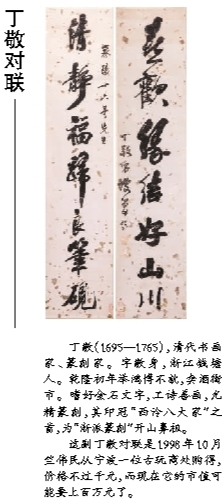 丁敬对联
喜歡緣結好山川
清靜福歸良筆硯
十六
先生
丁敬
丁敬(1695—1765),清代书画
家、篆刻家。字敬身,浙江钱塘
人。乾隆初年举鸿博不就,卖酒街
市。嗜好金石文字,工诗善画,尤
精篆刻,其印冠“西泠八大家”之
首,为“浙派篆刻”开山鼻祖。
这副丁敬对联是1998年10月
竺伟民从宁波一位古玩商处购得,
价格不过千元,而现在它的市值可
能要上百万元了。